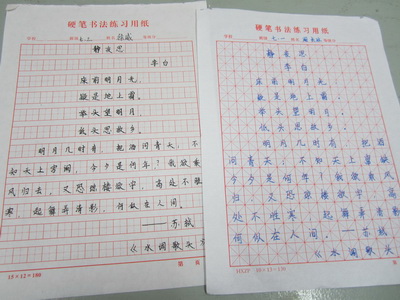 硬笔书法练习用纸
静夜思
李白
床前明月光
疑是地上霜。
举头望明月,
低头思故乡。
明月几时有,把酒问青天,不
知天上宫阙,今夕是何年?我欲乘
风归去,又恐琼楼玉宇,高处不胜
寒,起舞弄清影,何似在人间。
——苏轼
《水调歌头
15×12=180
硬笔书法练习用纸
静夜思
李白
床前明月光,
疑是地上霜。
举头望明月,
低头思故乡。
明月几时有 把酒
问青天,不知天上宫阙
今夕是何年 我欲乘
风归去 又恐琼楼玉宇 高
处不胜寒 起舞弄清影
何似在人间。——苏轼
《水调歌头